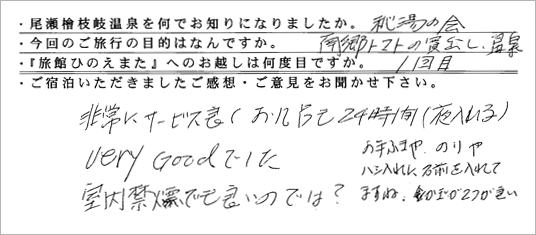 ・尾瀬檜枝岐温泉を何でお知りになりましたか。 秘湯の会
・今回のご旅行の目的はなんですか。 南郷トマトの買出し、温泉
・『旅館ひのえまた』へのお越しは何度目ですか。 1回目
・ご宿泊いただきましたご感想・ご意見をお聞かせ下さい。
非常にサービス良く お風呂も24時間(夜入れる)
very Goodでした
室内禁煙でも良いのでは?
お手ふきや、のりや
ハシ入れに名前を入れて
ますね。 が2つが良い